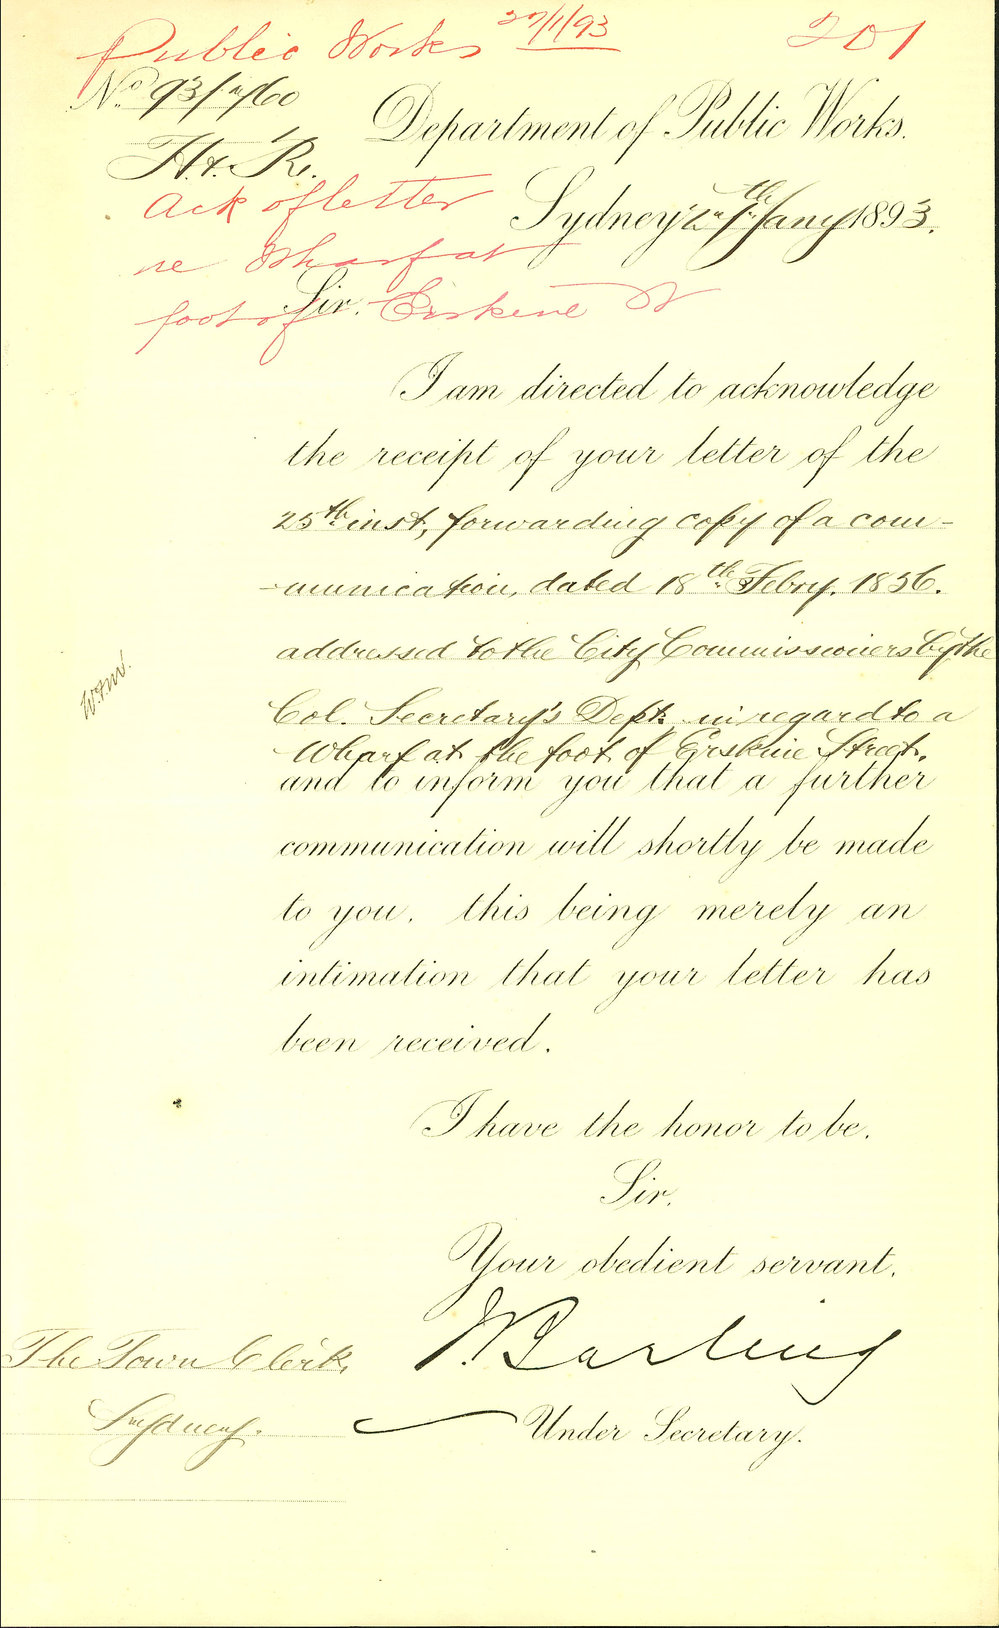 Public Works 27/1/93 201
No. 93/760
Department of Public Works.
H. & R.
Ack of letter
Sydney 27th Jany 1893.
re Wharf at
foot of Erskine St
Sir.
I am directed to acknowledge
the receipt of your letter of the
25th inst, forwarding copy of a com-
-munication, dated 18th Febry. 1856.
addressed to the City Commissioners by the
Col. Secretary's Dept. in regard to a
Wharf at the foot of Erskine Street.
and to inform you that a further
communication will shortly be made
to you. this being merely an
intimation that your letter has
been received.
I have the honor to be.
Sir.
Your obedient servant.
J. Barling
The Town Clerk,
Sydney.
Under Secretary.